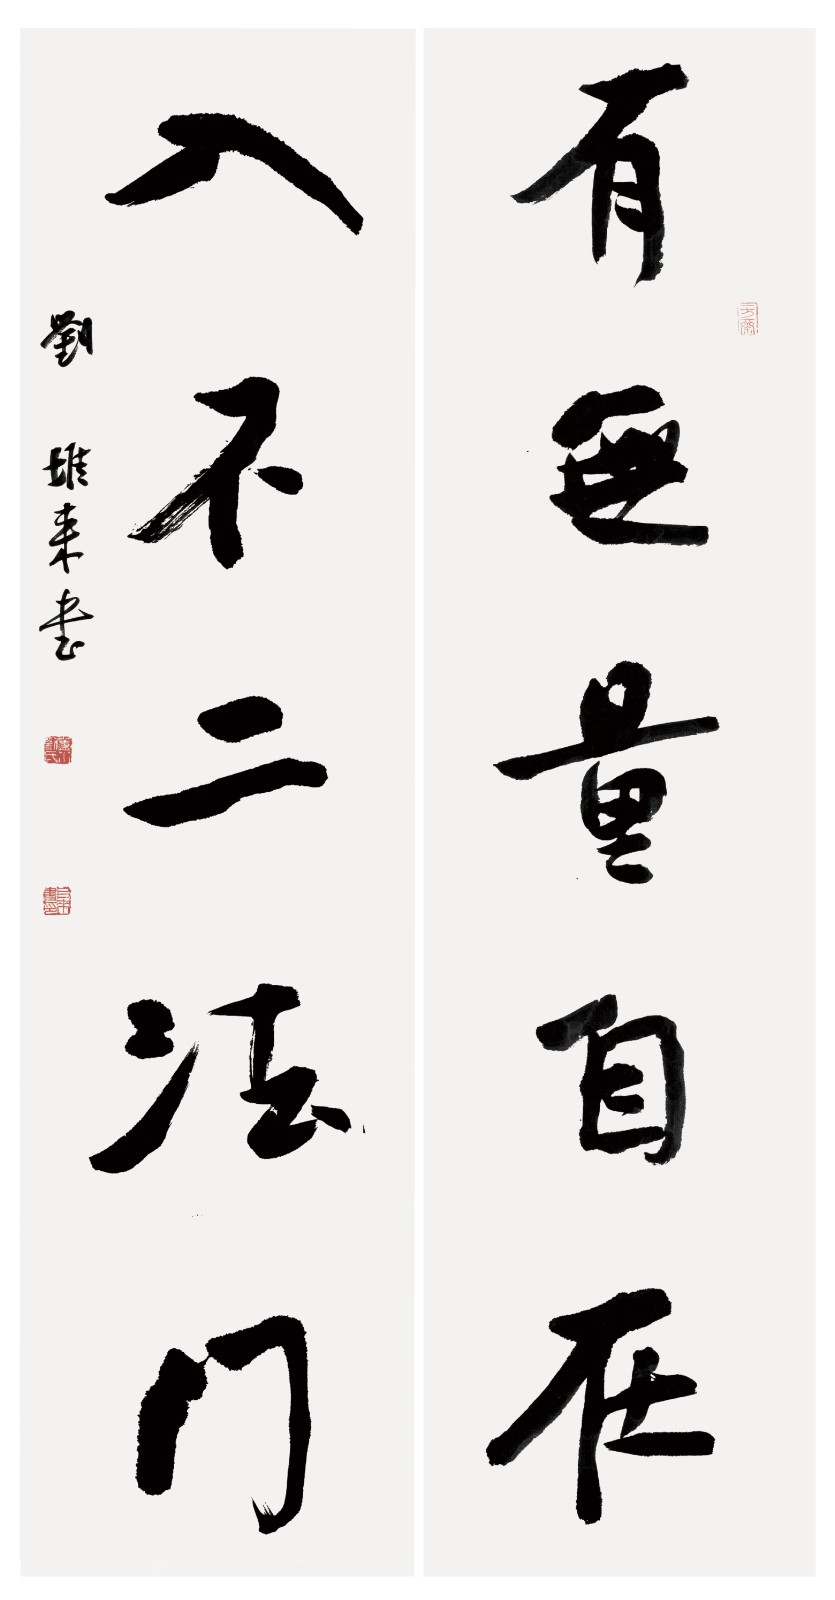 有無量自在
入不二法门
劉雄来书